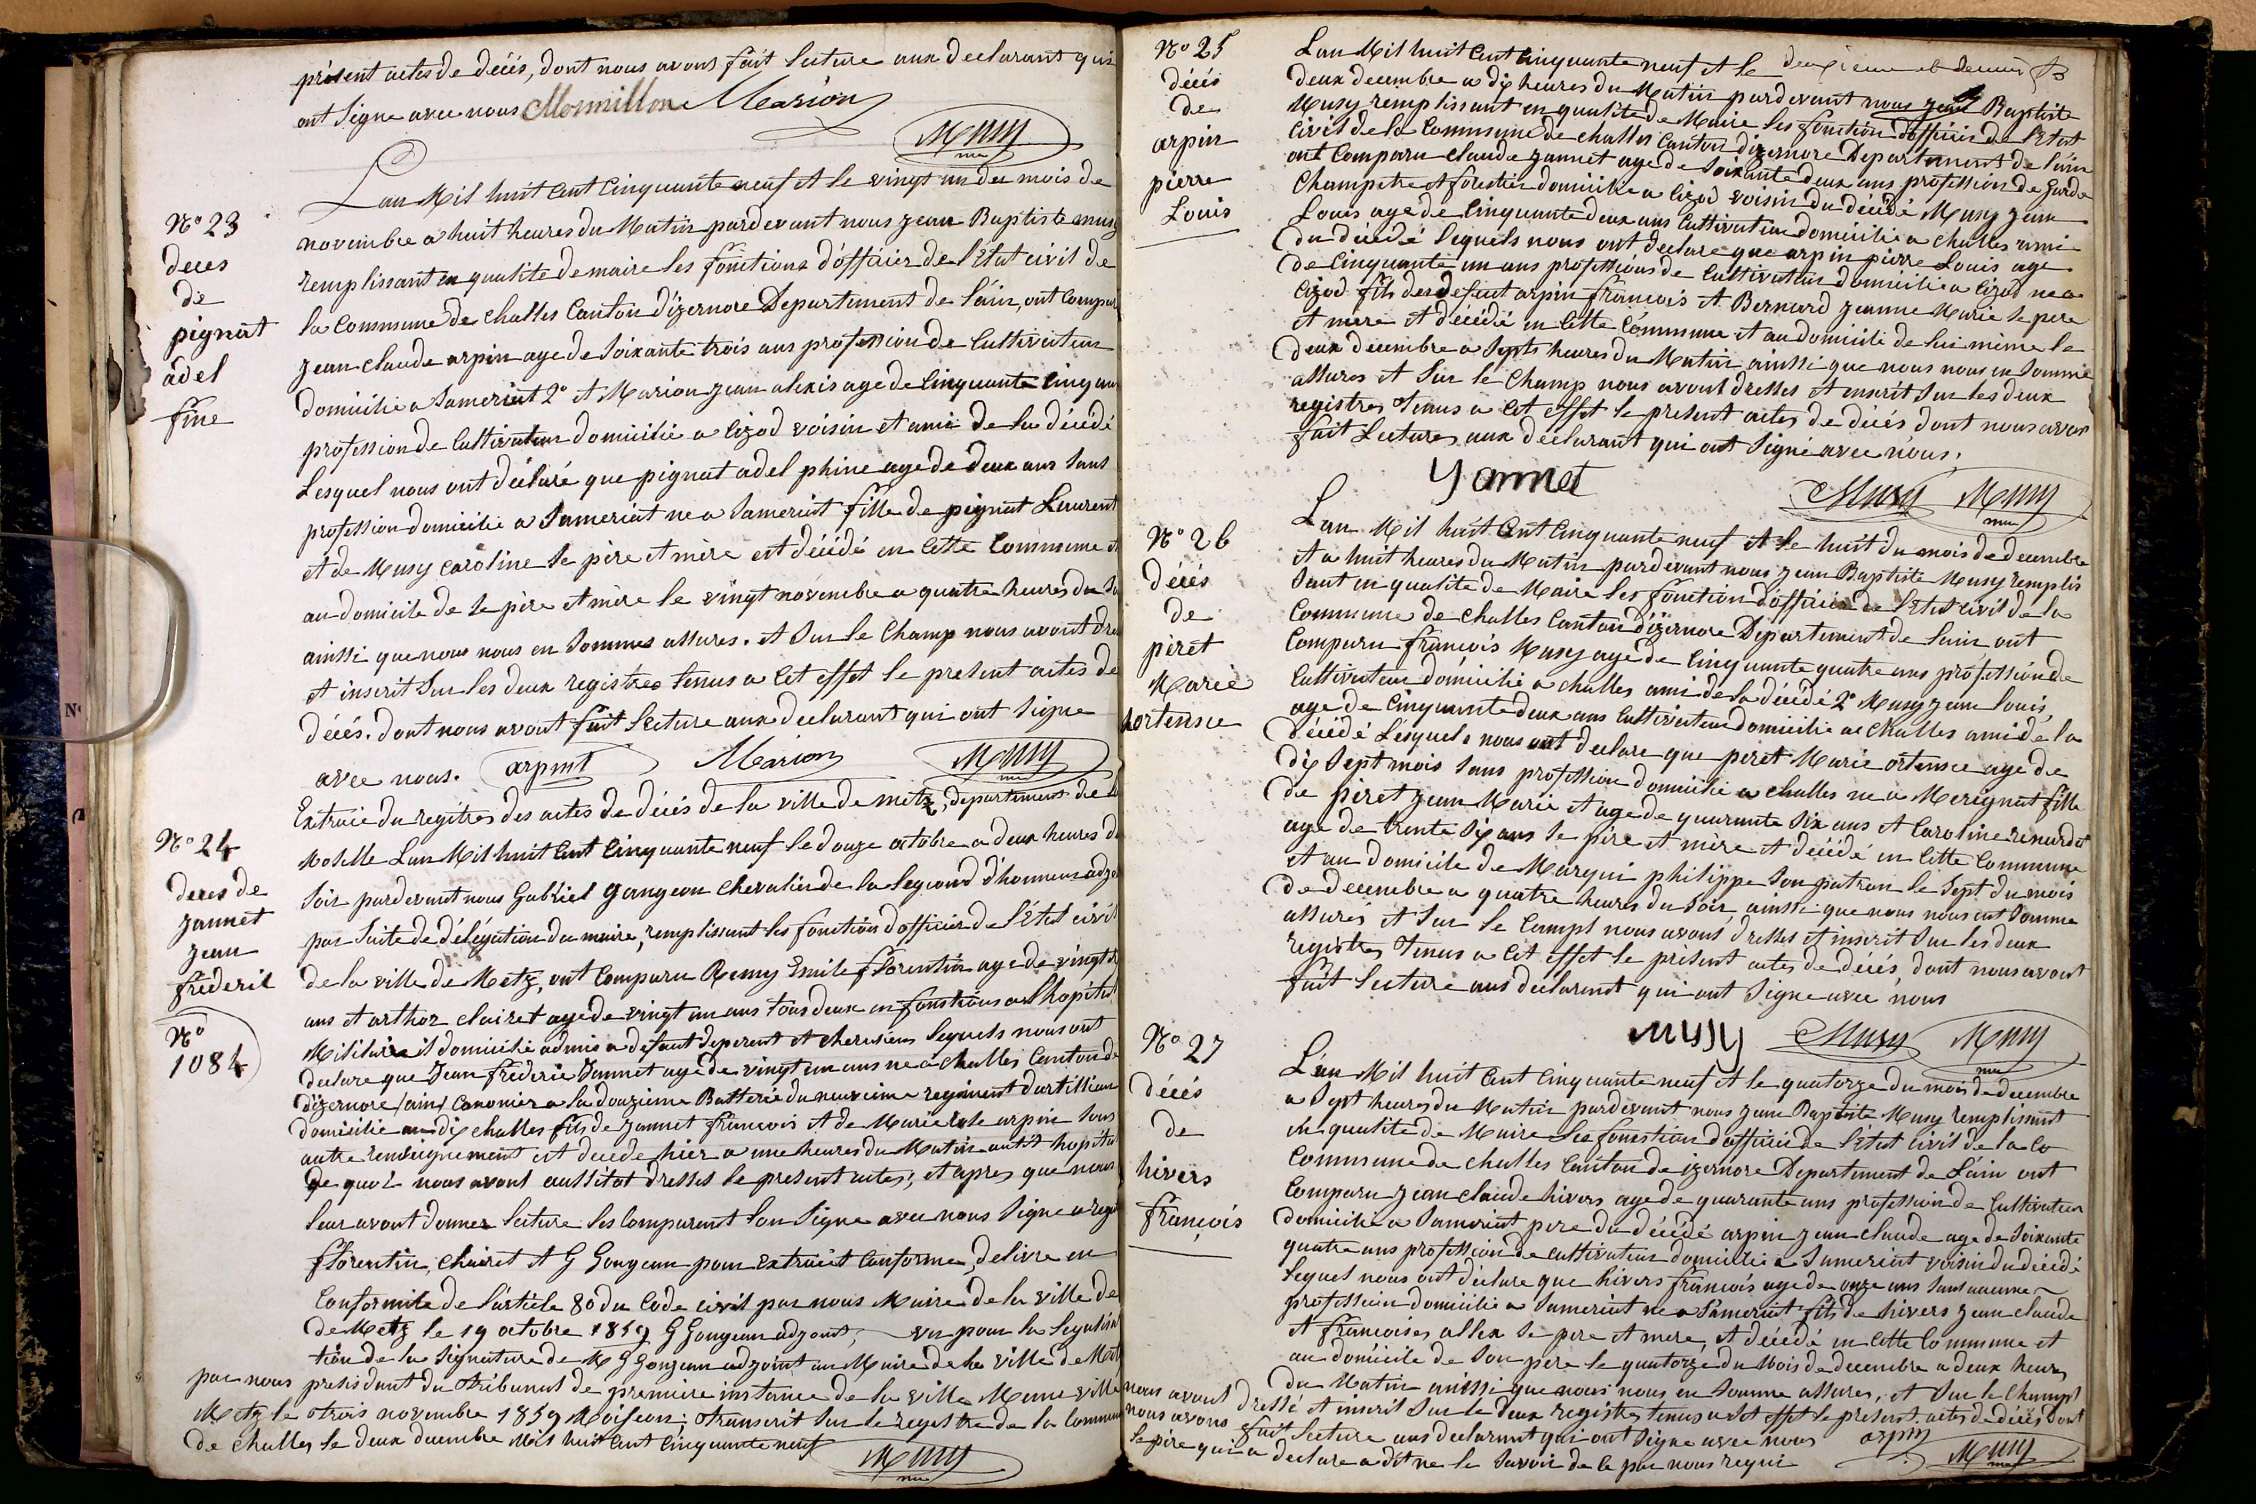 présent actes de décés, dont nous avons fait lecture aux declarant qui
ont signe avec nous Mornillon Marion
Musy
N° 23
deces
de
pignat
adel
fine
L'an Mil huit Cent Cinquante neuf et le vingt un du mois de
novembre a huit heures du Matin pardevant nous jean Baptiste musy
remplissant en qualité de maire les fonctions d'officier de l'Etat civil de
la Commune de challes Canton d'izernore Departement de l'ain, ont Comparu
jean claude arpin age de soixante trois ans profession de Cultivateur
domicilie a Sameriat 2° et Marion jean alexis age de Cinquante Cinq ans
profession de Cultivateur domicilie a Cizod voisin et ami de la décédé
Lesquel nous ont déclaré que pignat adel phine age de deux ans sans
profession domicilie a Sameriat ne a Sameriat fille de pignat Laurent
et de Musy caroline le père et mère est décédé en Cette Commune et
au domicile de le père et mère le vingt novembre a quatre heures du
ainssi que nous nous en sommes assures. et sur le Champ nous avont
et inscrit sur les deux registres tenus a Cet effet le présent actes de
décés. dont nous avont fait lecture aux declarant qui ont signe
avec nous. arpint Marion Musy
N° 24
deces de
jannet
jean
fréderil
N°
1084
Extraie du regitres des actes de décés de la ville de metz, departement de la
Moselle L'an Mil huit Cent Cinquante neuf le douze octobre a deux heures du
soir pardevant nous Gabriel Gongeon Chevalier de la Legiond d'honneur adjoint
par suite de délégation du maire, remplissant les fonction d'officier de l'Etat civil
de la ville de Metz, ont Comparu Remy Emile Florentin age de vingt
ans et arthor clairet age de vingt un ans tous deux en fonctions a l'hopital
Militaire il domicilié admis a defaut de perent et cherusiens lequels nous ont
declare que Jean fréderic Jannet age de vingt un ans ne a challes Canton de
d'izernore (ain) canonier a la douzieme Batterie du neuvieme regiment d'artillerie
domicilie au dix challes fils de jannet françois et de Marie arpin sans
autre renseignement est decede hier a une heures du Matin audit hopital
de quoi nous avont aussitot dresses le present actes, et apres que nous
leur avont donner lecture les Comparent l'on signe avec nous signe
Florentin, clairet et G Gongeon pour Extrait Conforme, delivre en
Conformite de l'article 80 du Code civil par nous Maire de la ville de
de Metz le 19 octobre 1859 G Gongeon adjoint, vu pour la legalisa
tion de la signature de M G Gongeon adjoint au Maire de la ville de Metz
par nous presisdant du tribunal de premiere instance de la ville Meme ville
Metz le trois novembre 1859 Moisson; transcrit sur le registre de la Commune
de challes le deux decembre Mil huit Cent Cinquante neuf
Musy
N° 25
décés
de
arpin
pierre
Louis
L'an Mil huit Cent Cinquante neuf et le deuxieme
deux decembre a dix heures du Matin pardevant nous jean Baptiste
Musy remplissant en qualité de Maire les fonction d'officier de l'Etat
Civil de la Commune de challes Canton d'izernore Departement de l'ain
ont Comparu Claude jannet age de soixante deux ans profession de garde
Champetre et forestier domicilie a Cizod voisin du décédé Musy jean
Louis age de Cinquante deux ans Cultivateur domicilié a challes ami
du décédé lequels nous ont declare que arpin pierre Louis age
de Cinquante un ans professions de Cultivateur domicilie a Cizod ne a
Cizod fils de defunt arpin francois et Bernard jeanne Marie le pere
et mere et décédé en Cette Commune et au domicile de lui meme le
deux decembre a septs heures du Matin ainssi que nous nous en somme
assures et sur le Champ nous avont dresses et inscrit sur les deux
registres tenus a Cet effet le present actes de décés dont nous avons
fait Lectures aux declarant qui ont signe avec nous.
Yannet Musy Musy
N° 26
décés
de
péret
Marie
hortense
L'an Mil huit Cent Cinquante neuf et le huit du mois de decembre
et a huit heures du Matin pardevant nous jean Baptiste Musy remplis
sant en qualité de Maire les fonction d'officier de l'Etat civil de la
Commune de challes Canton d'izernore Departement de lain ont
Comparu françois Musy age de Cinquante quatre ans profession de
Cultivateur domicilié a challes ami de la décédé 2° Musy jean Louis,
age de Cinquante deux ans Cultivateur domicilie a Challes ami de la
décédé Lesquels nous ont declare que peret Marie ortense age de
dix sept mois sans profession domicilie a challes ne a Merignat fille
de péret jean Marie et age de quarante six ans et Caroline renardet
age de trente six ans le père et mère et décédé en Cette Commune
et au domicile de Marquis philippe son patron le sept du mois
de decembre a quatre heures du soir, ainssi que nous nous ent somme
assurés et sur le Campt nous avons dresses et inscrit sur les deux
registres tenus a Cet effet le présent actes de décés, dont nous avont
fait lecture aus declarant qui ont signe avec nous
musy Musy Musy
N° 27
décés
de
hivers
françois
L'an Mil huit Cent Cinquante neuf et le quatorze du mois de decembre
a sept heures du Matin pardevant nous jean Baptiste Musy remplissant
en qualité de Maire les fonction d'officier de l'Etat civil de la Co
Commune de challes Canton de izernore Departement de L'ain ont
Comparu jean claude hivers age de quarante ans profession de Cultivateur
domicilie a Sameriat pere du décédé arpin jean claude age de soixante
quatre ans profession de cultivateur domicilie a Sameriat voisin du décédé
lequel nous ont déclare que hivers françois age de onze ans sans aucune
profession domicilie a Sameriat ne a Sameriat fils de hivers jean claude
et françoises allex le pere et mere, et décédé en Cette Commune et
au domicile de son pere le quatorze du Mois de decembre a deux heures
du Matin ainssi que nous nous en somme assures, et sur le Champt
nous avont dressé et inscrit sur le deux registres tenus a Cet effet le present actes de décés dont
nous avons fait lecture aus declarant qui ont signe avec nous arpin Musy
le père qui a declare a dit ne le savoir de ce par nous requi